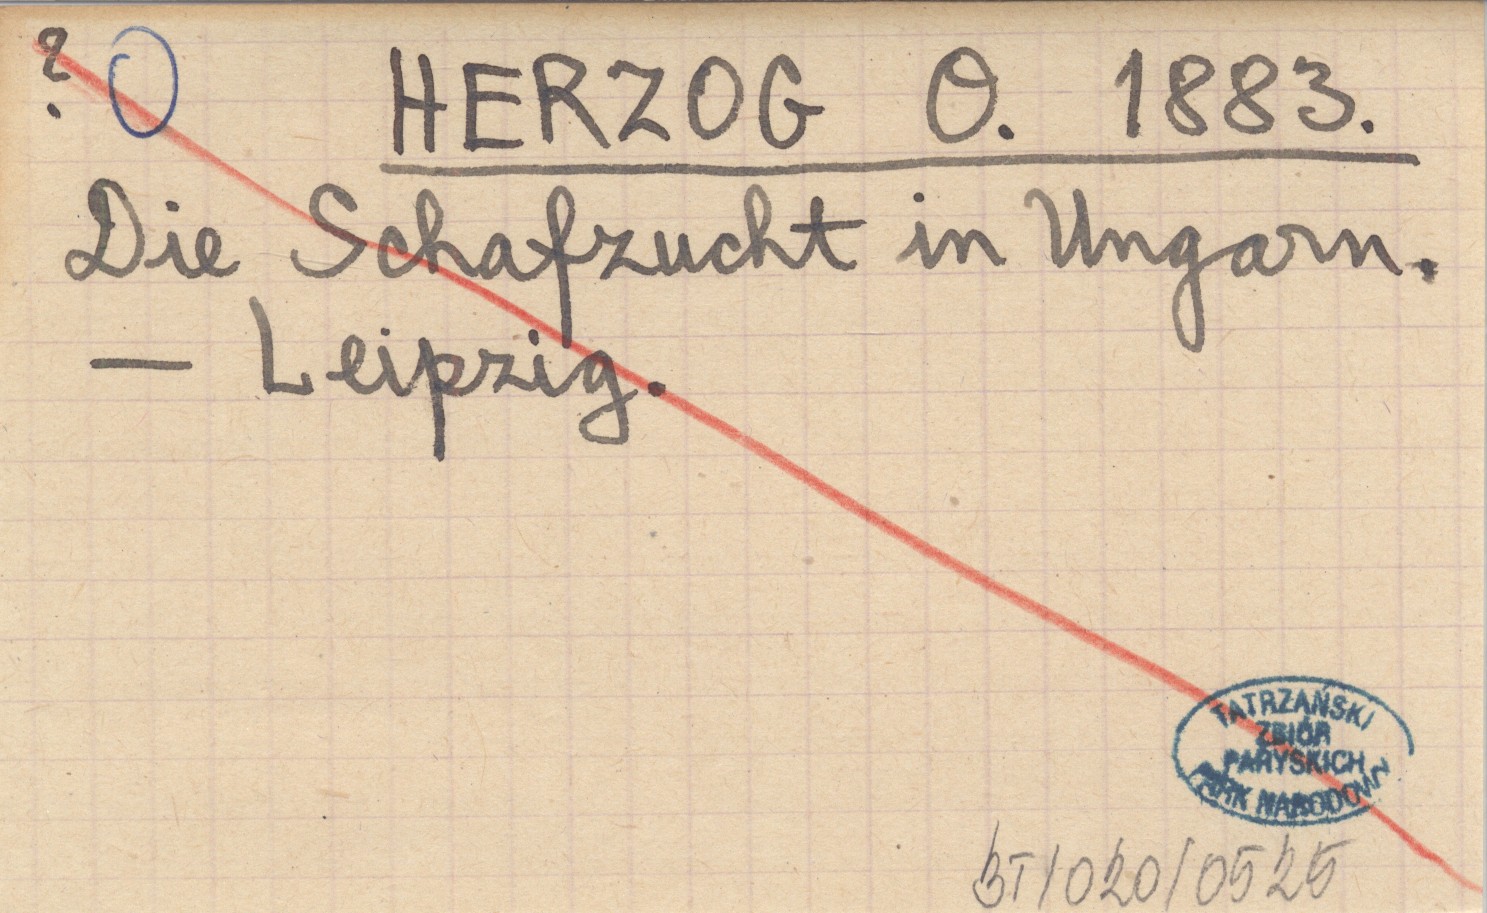 ? O HERZOG O. 1883.
Die Schafzucht in Ungarn.
— Leipzig.
TATRZAŃSKI
ZBIÓR
PARYSKICH
PARK NARODOWY
BT/020/0525